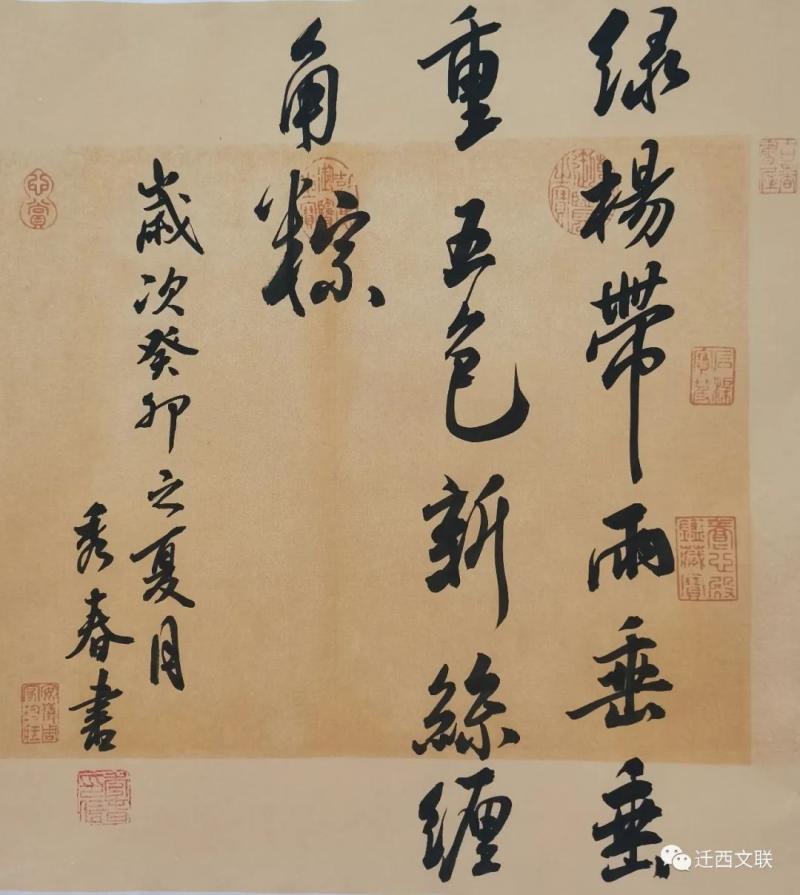 绿楊帶雨垂垂
重五色新絲缠
角粽
歲次癸卯之夏月
秀春書
迁西文联